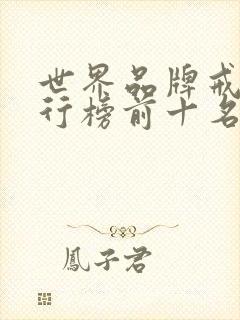 世界品牌戒
行榜前十名
鳳子君